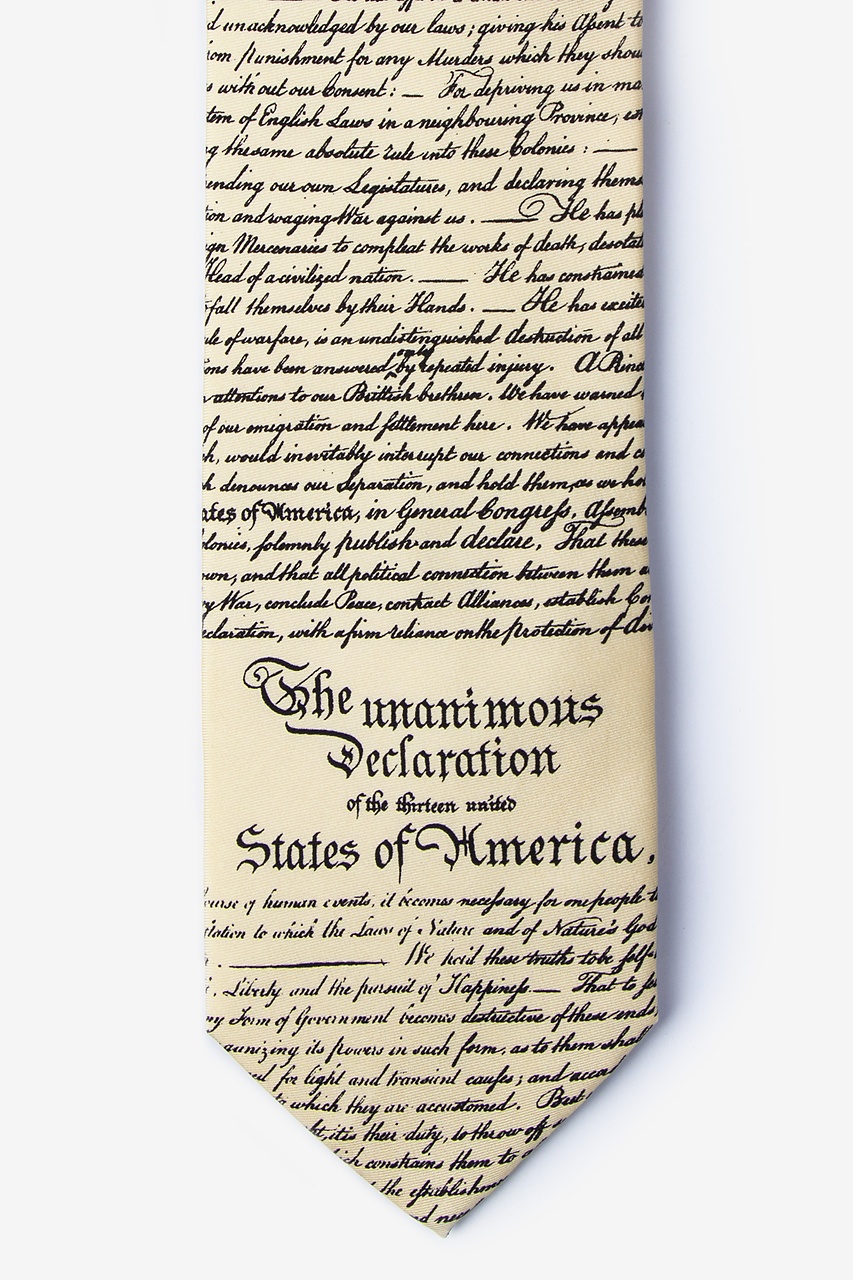 d unacknowledged by our laws; giving his Assent to
om punishment for any Murders which they shou
s without our Consent: — For depriving us in ma
tem of English Laws in a neighbouring Province, es
g the same absolute rule into these Colonies: —
ending our own Legislatures, and declaring thems
ion and waging War against us. — He has pl
ign Mercenaries to compleat the works of death, desolat
Head of a civilized nation. — He has constrained
fall themselves by their Hands. — He has excite
ule of warfare, is an undistinguished destruction of all
ons have been answered only by repeated injury. A Princ
attentions to our Brittish brethren. We have warned
of our emigration and settlement here. We have appea
h, would inevitably interrupt our connections and c
h denounces our Separation, and hold them, as we ho
ates of America, in General Congress, Assemb
olonies, solemnly publish and declare, That these
own, and that all political connection between them a
y War, conclude Peace, contract Alliances, establish Co
eclaration, with a firm reliance on the protection of div
The unanimous
Declaration
of the thirteen united
States of America,
ourse of human events, it becomes necessary for one people t
station to which the Laws of Nature and of Nature's God
We hold these truths to be self-
, Liberty and the pursuit of Happiness.— That to se
ny Form of Government becomes destructive of these ends,
ganizing its powers in such form, as to them shall
ed for light and transient causes; and accor
to which they are accustomed. But
ht, it is their duty, to throw off s
ich constrains them to a
the establishm
d nec